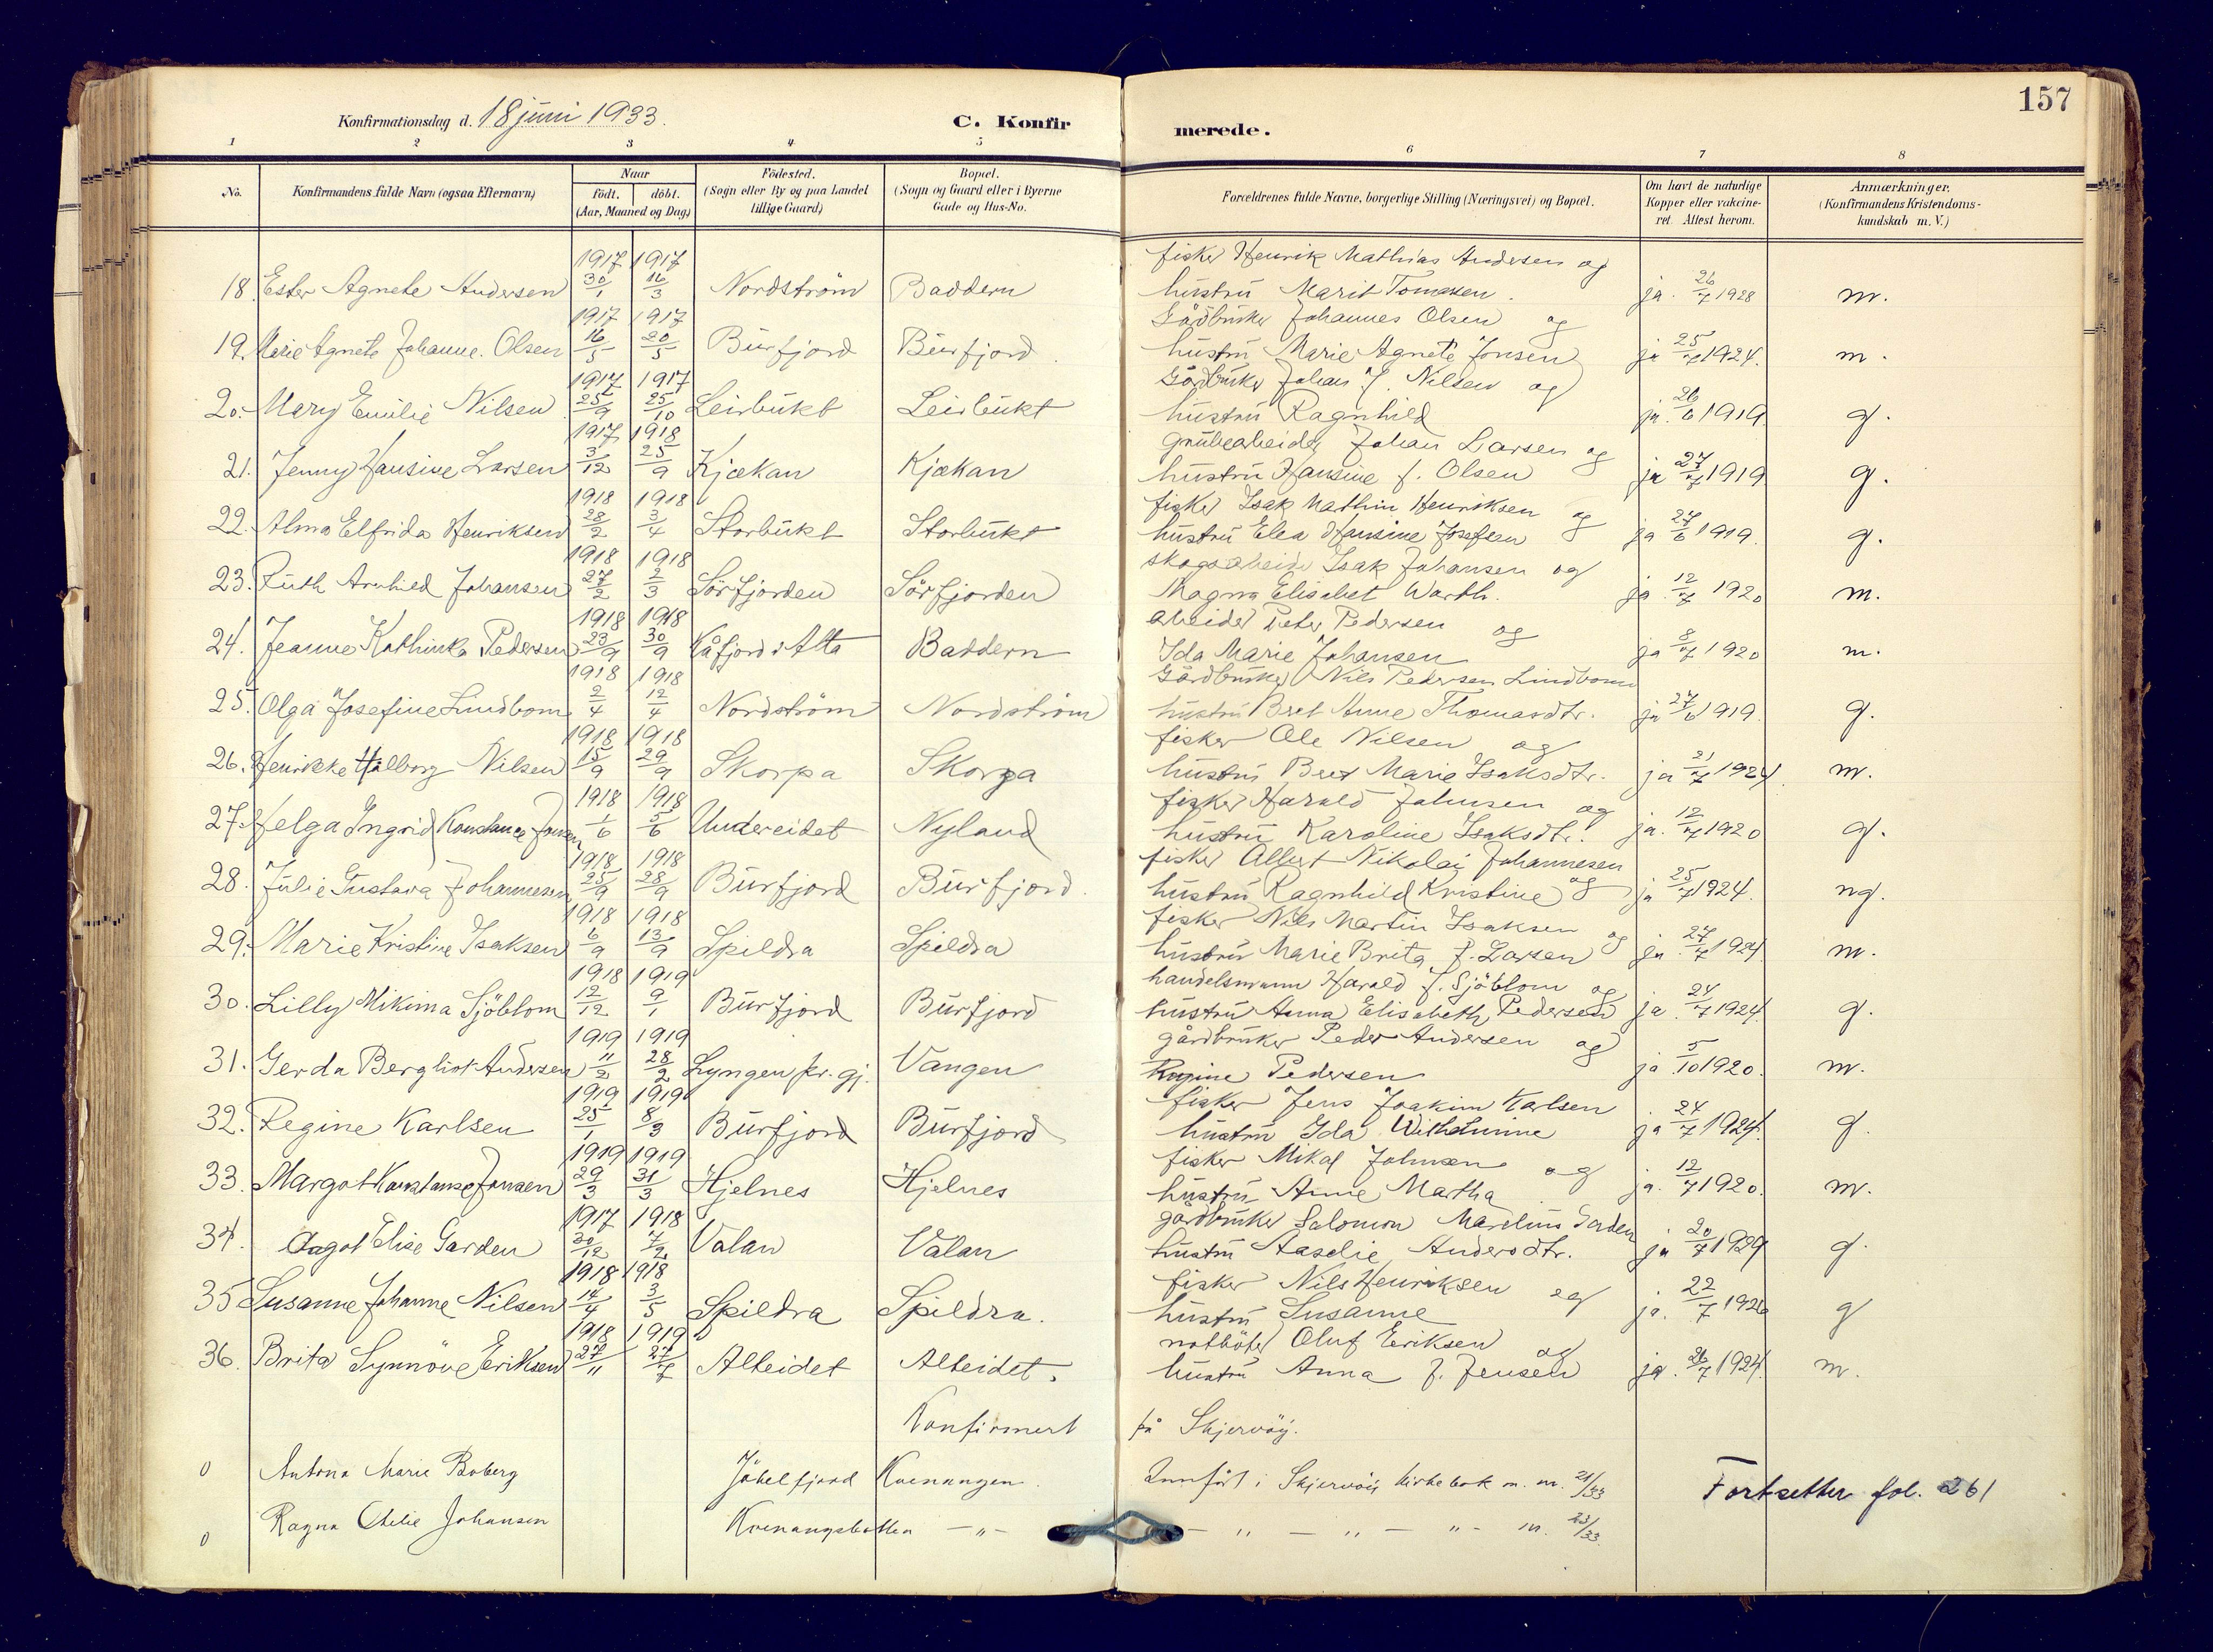 157
Konfirmationsdag d. 18 juni 1933.
C. Konfirmerede.
1 2 3 4 5 6 7 8
No.
Konfirmandens fulde Navn (ogsaa Efternavn)
Naar
födt. döbt.
(Aar, Maaned og Dag)
Födested.
(Sogn eller By og paa Landet
tillige Gaard)
Bopæl.
(Sogn og Gaard eller i Byerne
Gade og Hus-No.
Forældrenes fulde Navne, borgerlige Stilling (Næringsvei) og Bopæl.
Om havt de naturlige
Kopper eller vakcine-
ret. Attest herom.
Anmærkninger.
(Konfirmandens Kristendoms-
kundskab m. V.)
1917 1917 fisker Henrik Mathias Andersen og
18. Ester Agnete Andersen 30/1 16/3 Nordström Baddern hustrü Marit Tomasen. ja. 26/7 1928 m.
1917 1917 Gårdbrüker Johannes Olsen og
19. Marie Agnete Johanne. Olsen 16/5 20/5 Bürfjord Bürfjord. hustrü Marie Agnete Jonsen ja 25/7 1924. m.
1917 1917 Gårdbrüker Johan J. Nilsen og
20. Mary Emilie Nilsen 25/9 25/10 Leirbükt Leirbükt hustrü Ragnhild ja. 26/6 1919 g.
1917 1918 grübearbeider Johan Larsen og
21. Jenny Hansine Larsen 3/12 25/9 Kjækan Kjækan hustrü Hansine f. Olsen ja 27/7 1919 g.
1918 1918 fisker Isak Mathin Henriksen og
22. Alma Elfrida Henriksen 28/2 3/4 Storbükt Storbükt hustrü Elea Hansine Josefsen ja 27/6 1919. g.
1918 1918 skogsarbeider Isak Johansen og
23. Ruth Arnhild Johansen 27/2 2/3 Sörfjorden Sörfjorden Magna Elisabet Warth. ja. 12/7 1920 m.
1918 1918 arbeider Peter Pedersen og
24. Jeanne Kathinka Pedersen 23/9 30/9 Kåfjord i Alta Baddern Ida Marie Johansen ja 8/7 1920 m.
1918 1918 Gårdbrüker Nils Pedersen Lindbom
25. Olga Josefine Lindbom 2/4 12/4 Nordström Nordström hustrü Bret Anne Thomasdtr. ja 27/6 1919. g.
1918 1918 fisker Ole Nilsen og
26. Henrikke Hilborg Nilsen 15/9 29/9 Skorpa Skorpa hustrü Bret Marie Isaksdtr. ja 21/7 1924. m.
1918 1918 fisker Harald Johnsen og
27. Helga Ingrid Konstance Jonsen 1/6 5/6 Undereidet Nyland hustrü Karoline Isaksdtr. ja. 12/7 1920 g.
1918 1918 fisker Albert Nikolai Johannesen
28. Julie Gustava Johannesen 25/9 28/9 Bürfjord Bürfjord. hustrü Ragnhild Kristine og ja 25/7 1924. ng.
1918 1918 fisker Nils Martin Isaksen og
29. Marie Kristine Isaksen 6/9 13/9 Spildra Spildra hustrü Marie Brita f. Larsen ja. 27/7 1924. m.
1918 1919 handelsmann Harald J. Sjöblom og
30. Lilly Mikima Sjöblom 12/12 9/1 Bürfjord Bürfjord hustrü Anna Elisabeth Pedersen ja. 24/7 1924. g.
1919 1919 gårdbrüker Peder Andersen og
31. Gerda Bergliot Andersen 11/2 28/2 Lyngen pr. gj. Vangen Ragine Pedersen ja 5/10 1920. m.
1919 1919 fisker Jens Joakim Karlsen
32. Regine Karlsen 25/1 8/3 Bürfjord Bürfjord hustrü Ida Wilhelmine ja 24/7 1924. g.
1919 1919 fisker Mikal Johnsen og
33. Margot Konstanse Jonsen 29/3 31/3 Hjelnes Hjelnes hustrü Anne Martha ja. 12/7 1920. m.
1917 1918 gårdbrüker Salomon Marelius Garden
34. Aagot Elise Garden 30/12 7/2 Valan Valan hustrü Aaselie Andersdtr. ja 20/7 1929 g.
1918 1918 fisker Nils Henriksen og
35 Susanne Johanne Nilsen 14/4 3/5 Spildra Spildra. hustrü Susanne ja. 22/7 1926 g
1918 1919 notböter Oluf Eriksen og
36. Brita Synnöve Eriksen 27/11 27/7 Alteidet Alteidet. hustrü Anna f. Jensen ja. 26/7 1924. m.
Konfirmert på Skjervöy.
0 Antona Marie Boberg Jökelfjord Kvenangen. Innfört i Skjervöy kirkebok m. nr. 21/33
Fortsetter fol. 261
0 Ragna Othelie Johansen Kvenangsbotten — " — — " — " — " — m. 23/33.